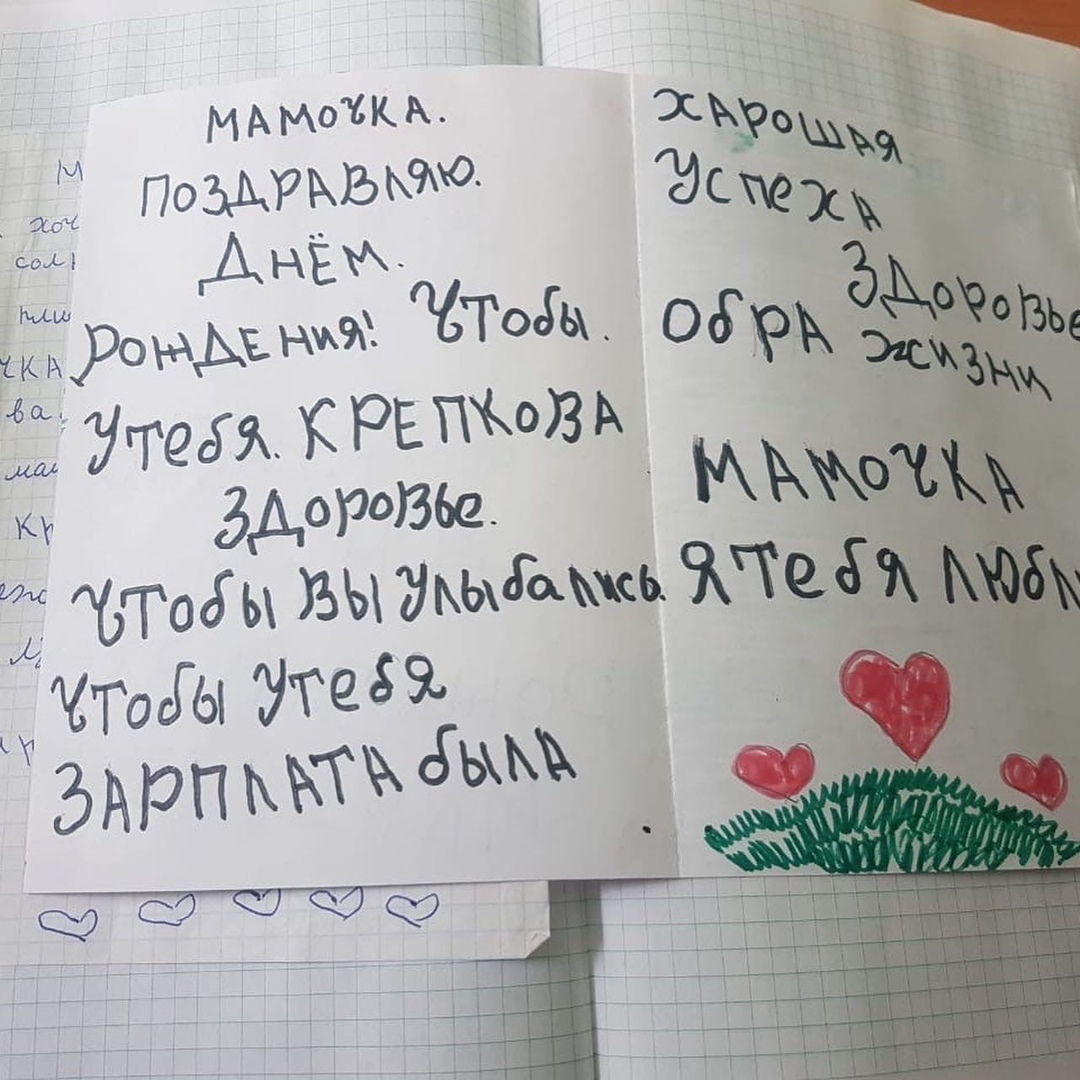 МАМОЧКА.
ПОЗДРАВЛЯЮ.
ДНЁМ.
РОЖДЕНИЯ! Чтобы.
Утебя. КРЕПКОВА
ЗДОРОВЬЕ.
Чтобы ВЫ Улыбались.
Чтобы Утебя
ЗАРПЛАТА была
ХАРОШАЯ
УСПЕХА
ЗДОРОВЬЕ
ОбРА ЖИЗНИ
МАМОЧКА
Я Тебя Любл
хоч
сол
ЧКА
ва
ма